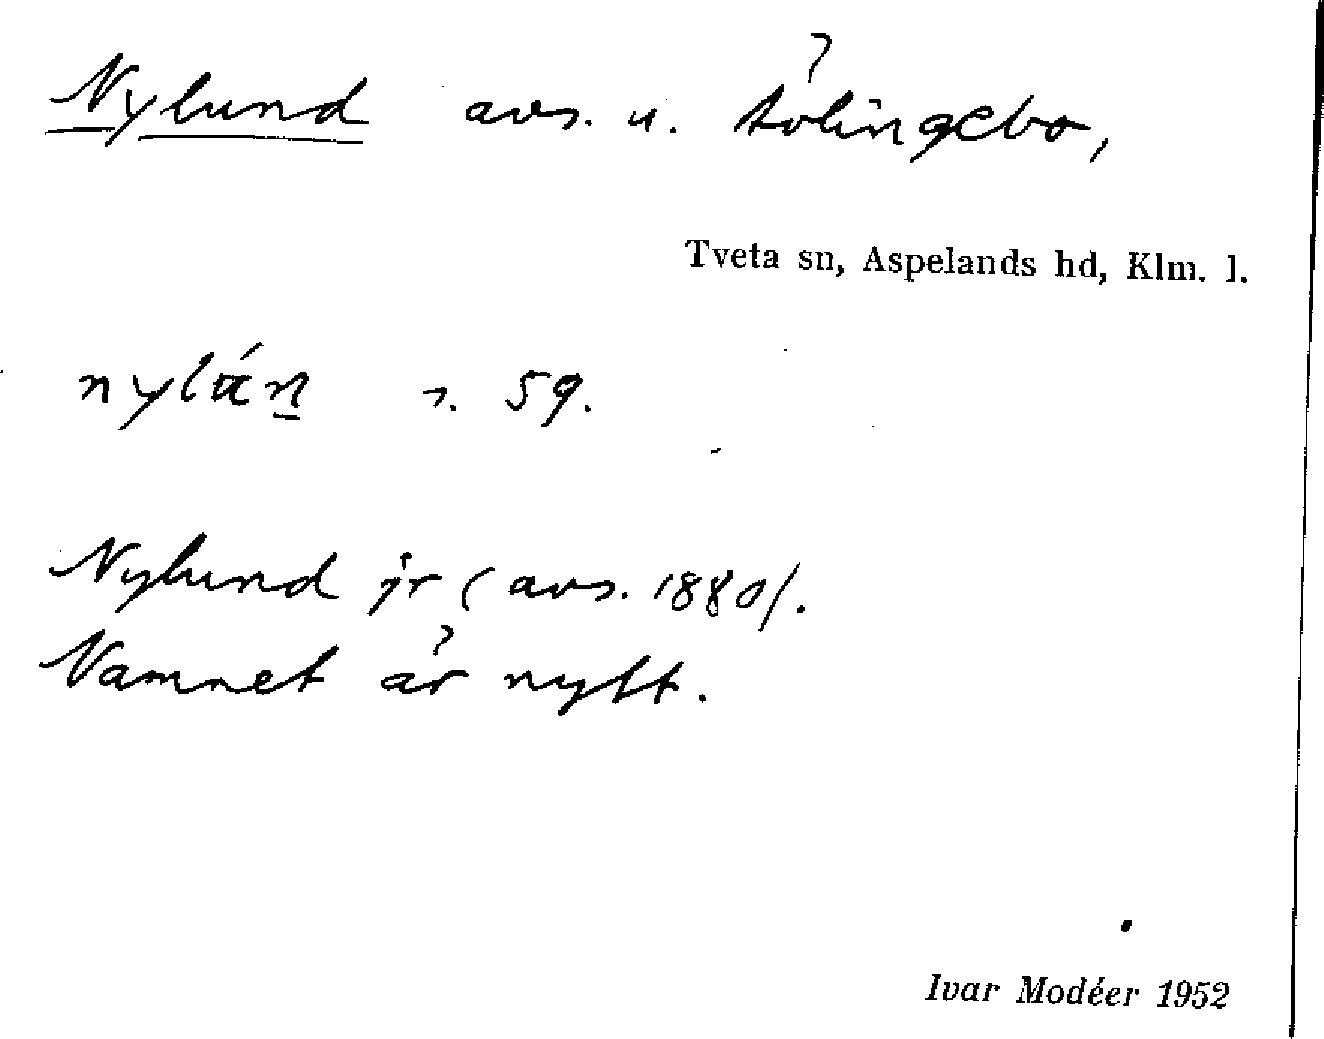 Nylund avs. u. Åvlingebo,
Tveta sn, Aspelands hd, Klm. l.
s. 59.
Nylund jr (avs. 1880/.
Namnet är nytt.
Ivar Modéer 1952